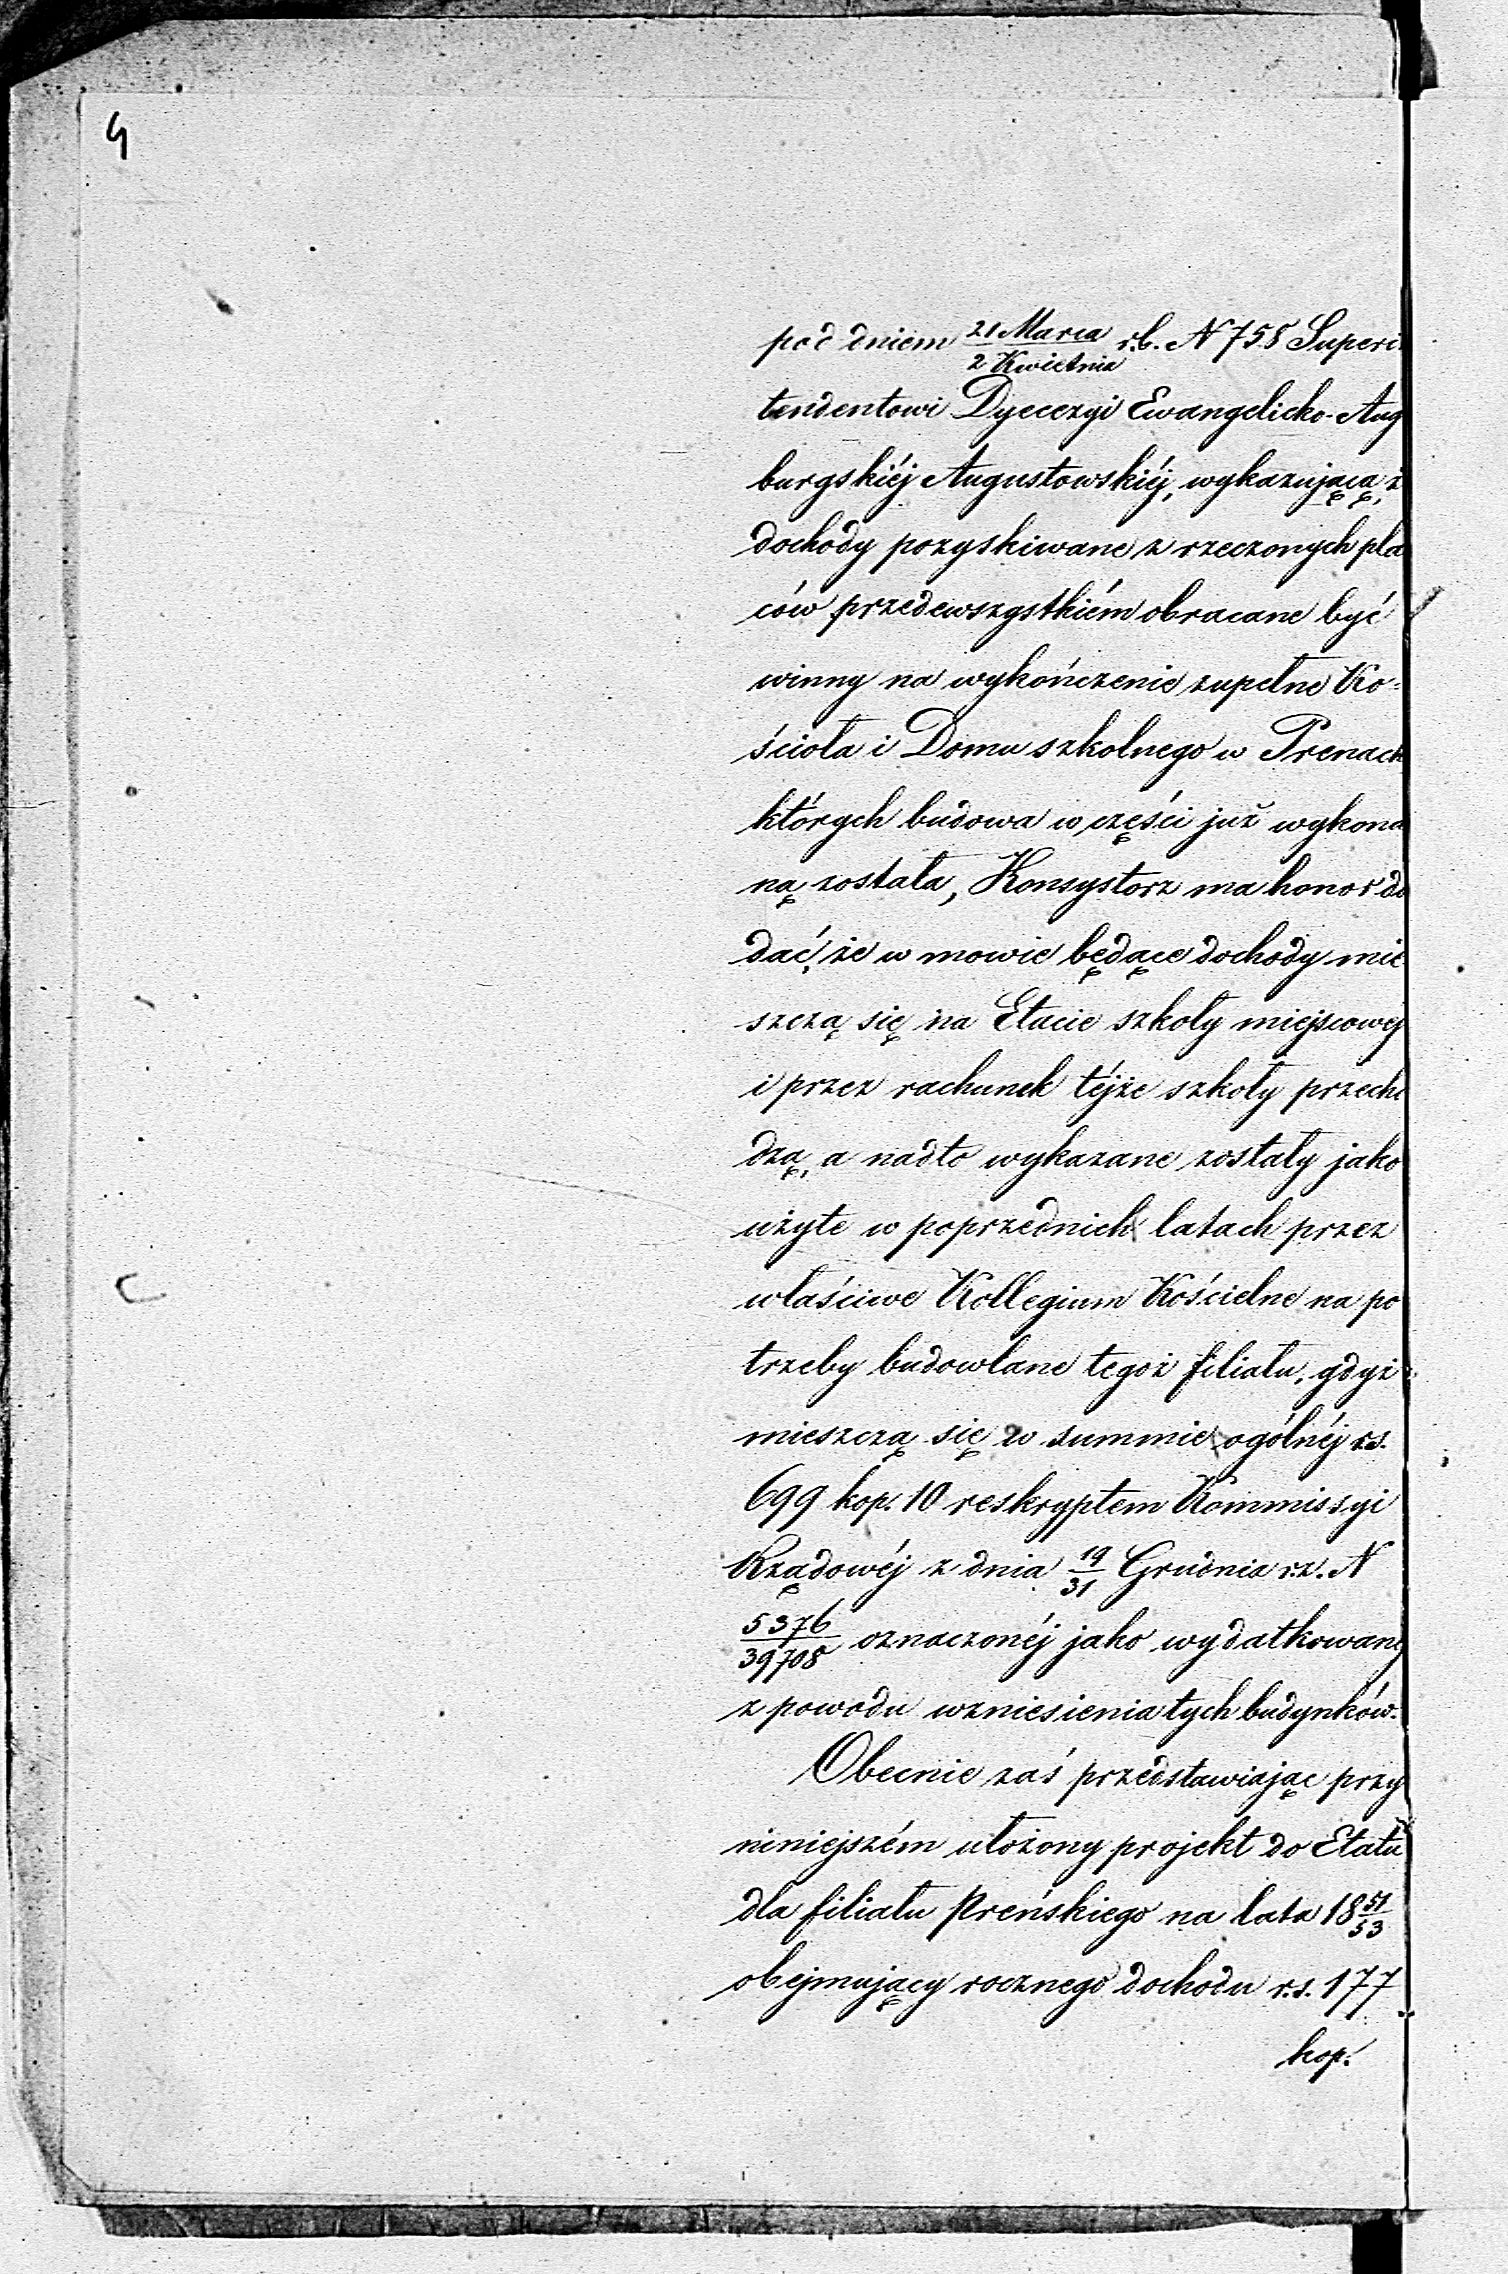 4
pod dniem 21 Marca/2 Kwietnia r.b. N 758 Superin
tendentowi Dyecezyi Ewangelicko-Aug
burgskiéj Augustowskiéj, wykazującą, ż
dochody pozyskiwane z rzeczonych pla
ców przedewszystkiém obracane być
winny na wykończenie zupełne Ko=
ścioła i Domu szkolnego w Prenach
których budowa w części już wykona
ną została, Konsystorz ma honor do
dać, że w mowie będące dochody mie
szczą się na Etacie szkoły miejscowej
i przez rachunek téjże szkoły przecho
dzą, a nadto wykazane zostały jako
użyte w poprzednich latach przez
właściwe Kollegium Kościelne na po
trzeby budowlane tegoż filiału, gdyż
mieszczą się w summie ogólnéj r.s.
699 kop. 10 reskryptem Kommissyi
Rządowéj z dnia 19/31 Grudnia r.z. N
5376/39708 oznaczonéj jako wydatkowanej
z powodu wzniesienia tych budynków.
Obecnie zaś przedstawiając przy
niniejszém ułożony projekt do Etatu
dla filiału Preńskiego na lata 18 51/53
obejmujący rocznego dochodu r.s. 177
kop.